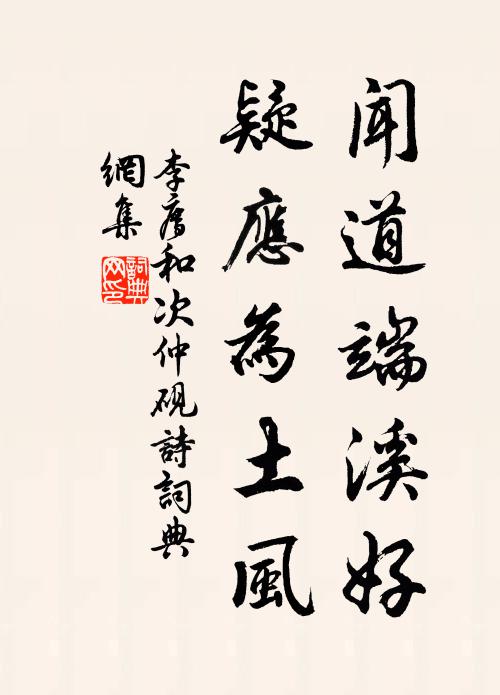 聞道端溪好
疑應為土風
李廌和次仲硯詩詞典
網集
詞典網印